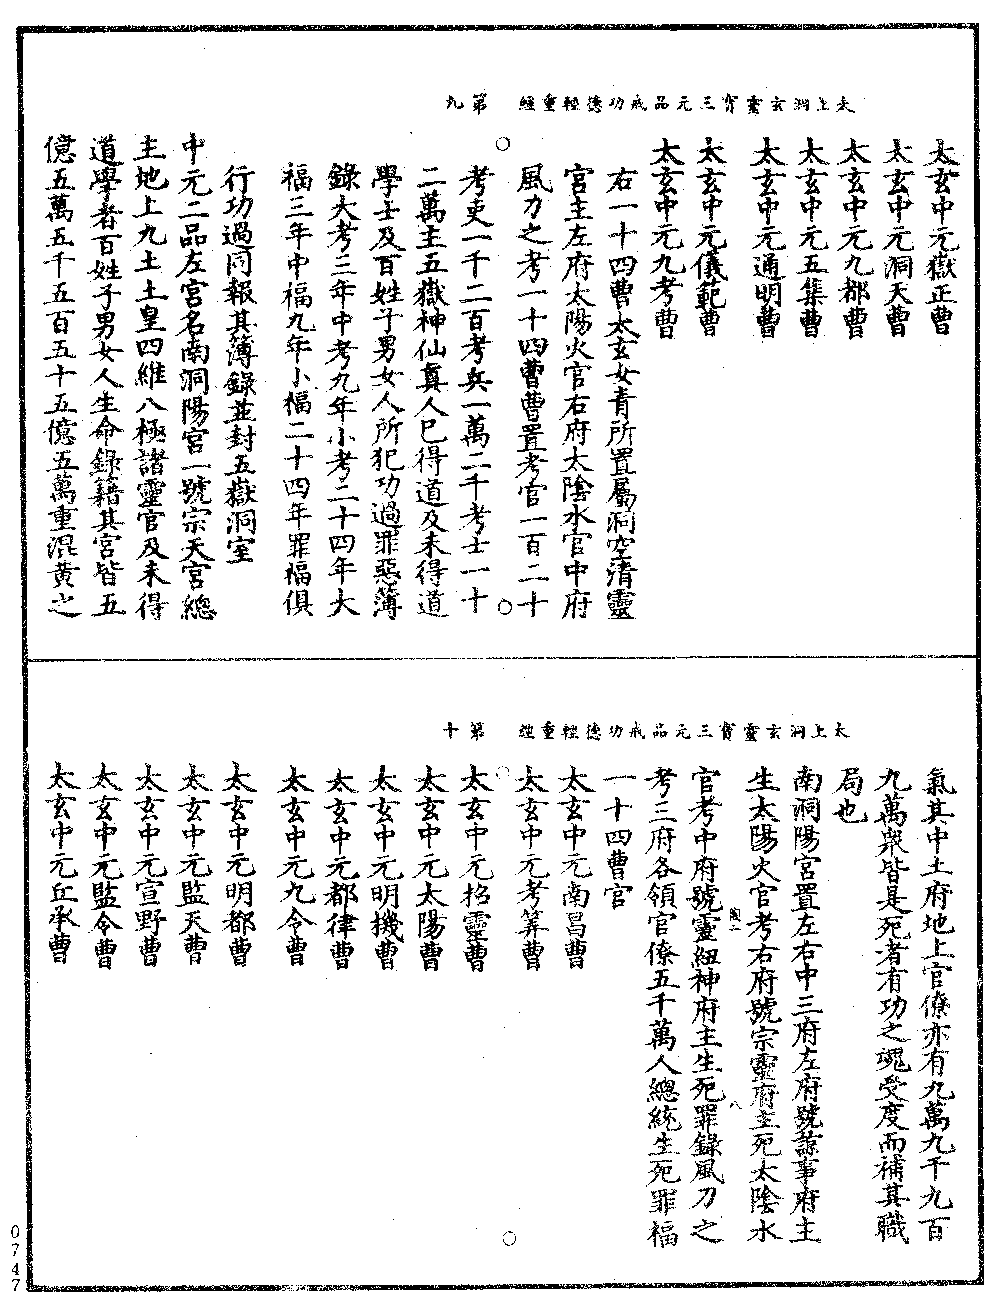 太上洞玄靈寶三元品戒功德輕重經　第九
太玄中元嶽正曹
太玄中元洞天曹
太玄中元九都曹
太玄中元五集曹
太玄中元通明曹
太玄中元儀範曹
太玄中元九考曹
右一十四曹太玄女青所置屬洞空清靈
宮主左府太陽火官右府太陰水官中府
風刀之考一十四曹曹置考官一百二十
考吏一千二百考兵一萬二千考士一十
二萬主五嶽神仙真人已得道及未得道
學士及百姓子男女人所犯功過罪惡簿
錄大考三年中考九年小考二十四年大
福三年中福九年小福二十四年罪福俱
行功過同報其簿錄並封五嶽洞室
中元二品左宮名南洞陽宮一號宗天宮總
主地上九土土皇四維八極諸靈官及未得
道學者百姓子男女人生命錄籍其宮皆五
億五萬五千五百五十五億五萬重混黃之
太上洞玄靈寶三元品戒功德輕重經　第十
氣其中土府地上官僚亦有九萬九千九百
九萬眾皆是死者有功之魂受度而補其職
局也
南洞陽宮置左右中三府左府號諒事府主
生太陽火官考右府號宗靈府主死太陰水
官考中府號靈紐神府主生死罪錄風刀之
考三府各領官僚五千萬人總統生死罪福
一十四曹官
太玄中元南昌曹
太玄中元考筭曹
太玄中元柖靈曹
太玄中元太陽曹
太玄中元明機曹
太玄中元都律曹
太玄中元九令曹
太玄中元明都曹
太玄中元監天曹
太玄中元宣野曹
太玄中元監令曹
太玄中元丘承曹
八
0747